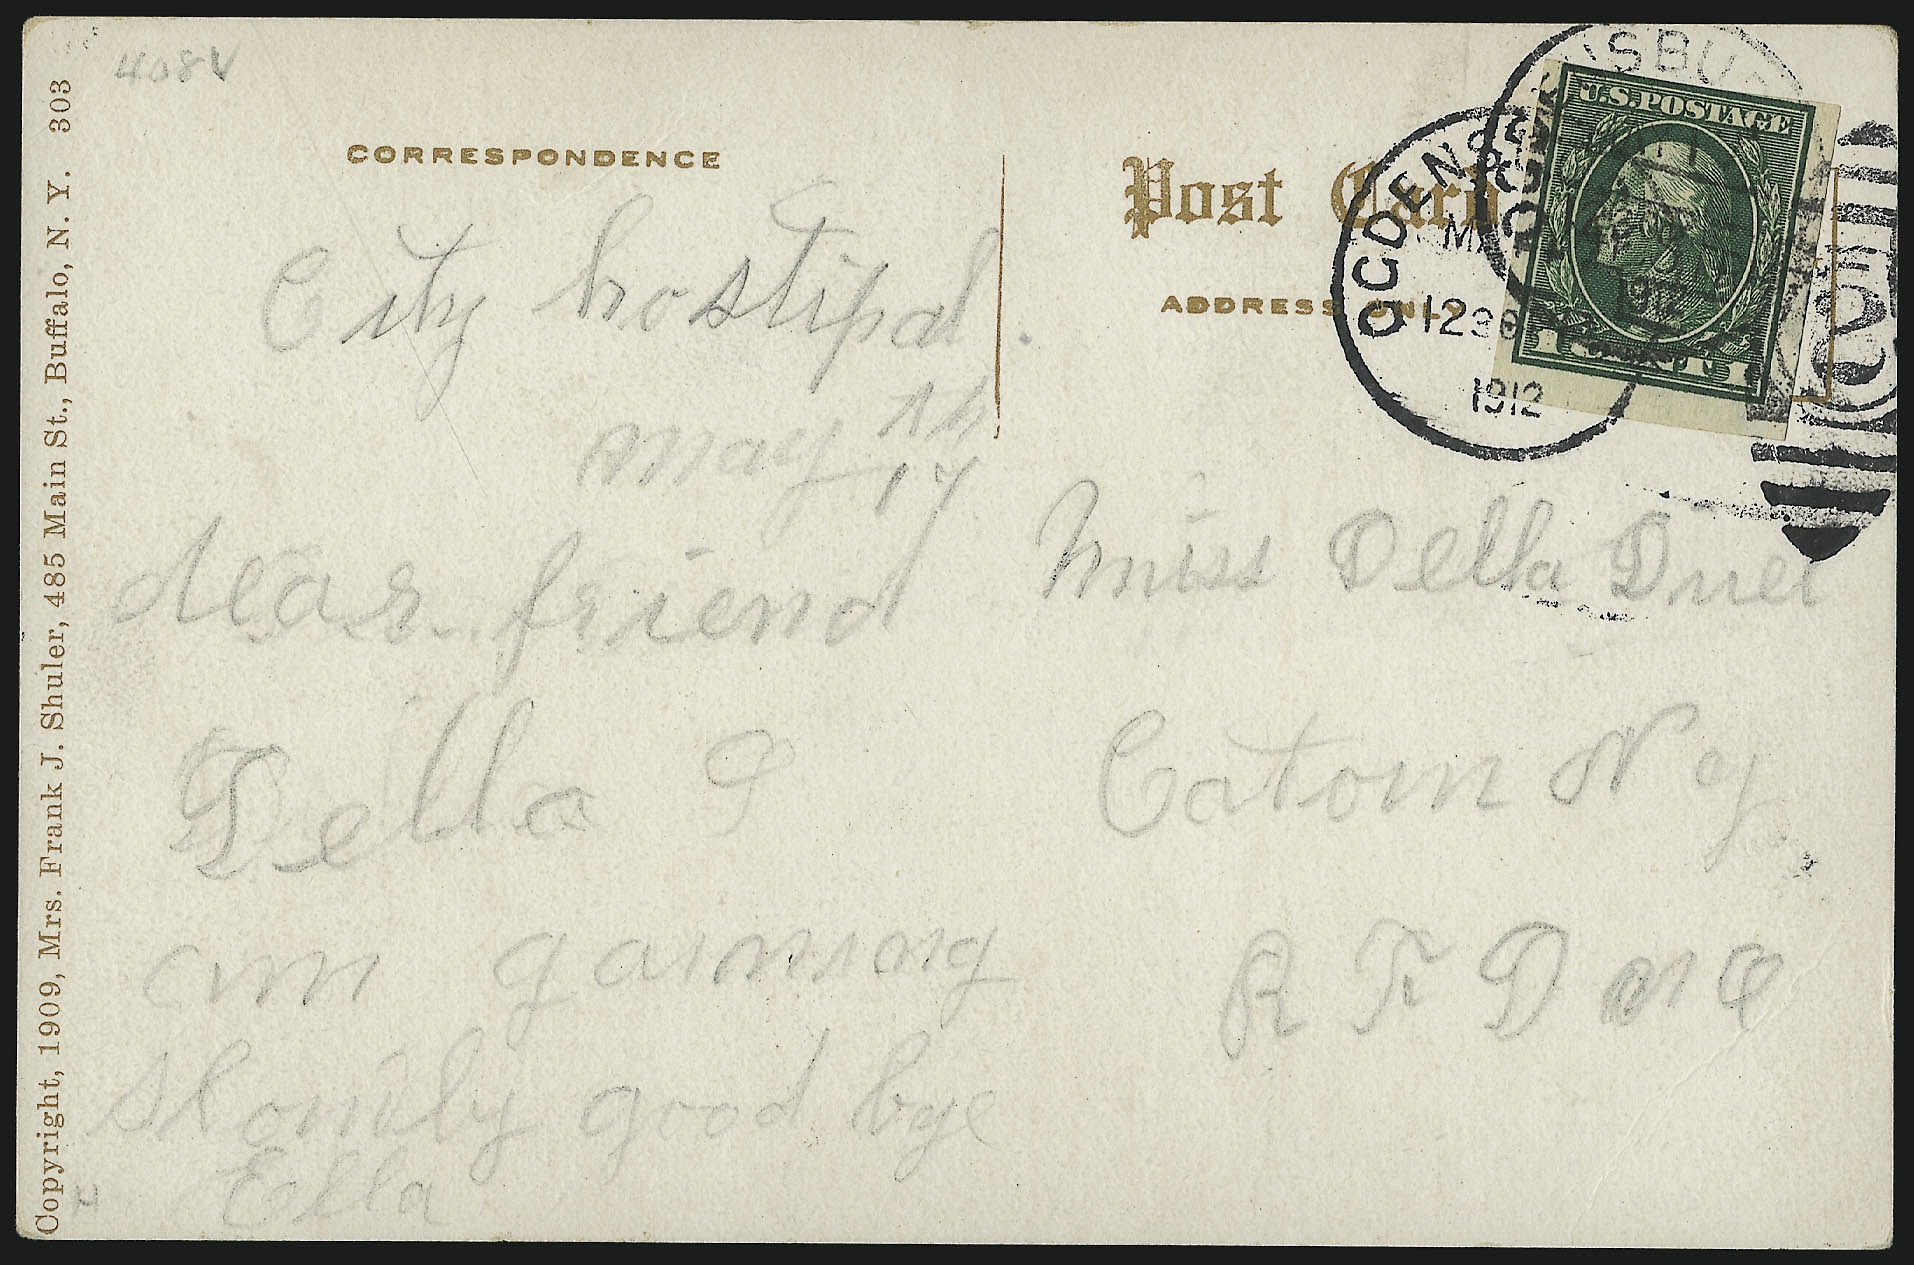 4084
Copyright, 1909, Mrs. Frank J. Shuler, 485 Main St., Buffalo, N. Y. 303
CORRESPONDENCE
City hostipal.
may 17
dear friend
Della
am gaining
slonily good bye
Ella
Post Card
ADDRESS ONLY
OGDENSBURG
OGDENSBU
1230
1912
U.S. POSTAGE
1 CENT 1
Miss Della Duel
Catom N y
R F D one